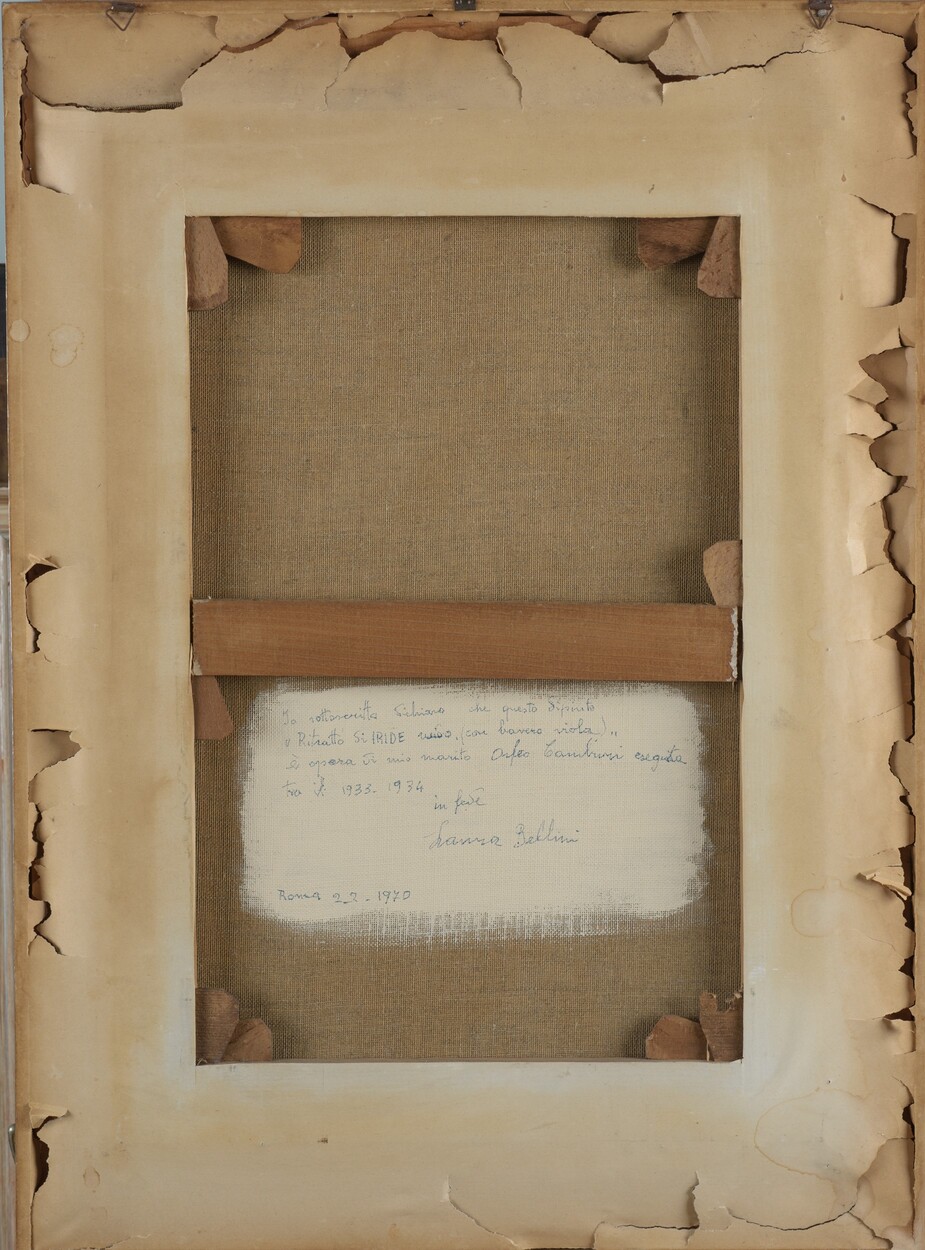 Io sottoscritta dichiaro che questo dipinto
"Ritratto di IRIDE (con bavero viola)"
è opera di mio marito Orfeo Tamburi eseguita
tra il 1933-1934
in fede
Bellini
Roma 2_2_1970